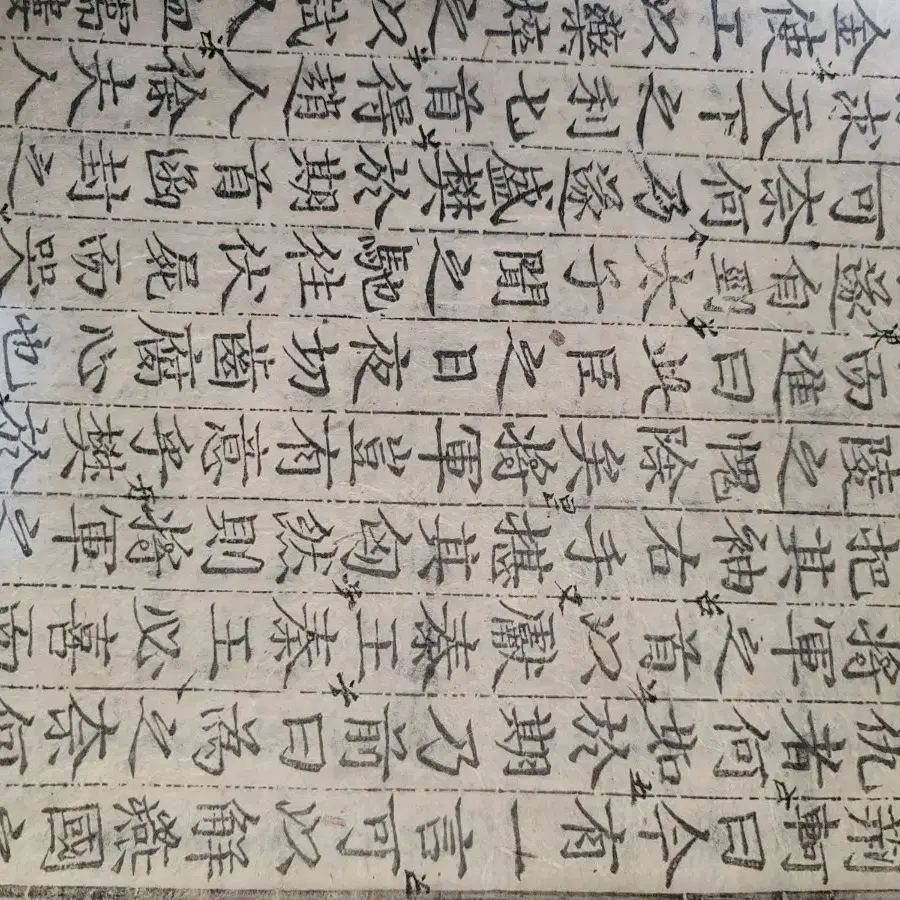 荊軻曰今有一言可以解燕國之
仇者何如於期乃前曰爲之柰何
將軍之首以獻秦王秦王必喜而
把其袖右手揕其匈然則將軍之
陵之愧除矣將軍豈有意乎樊於
而進曰此臣之日夜切齒腐心也
遂自剄太子聞之馳往伏屍而哭
可柰何乃遂盛樊於期首函封之
求天下之利匕首得趙人徐夫人
金使工以藥焠之以試人血濡縷